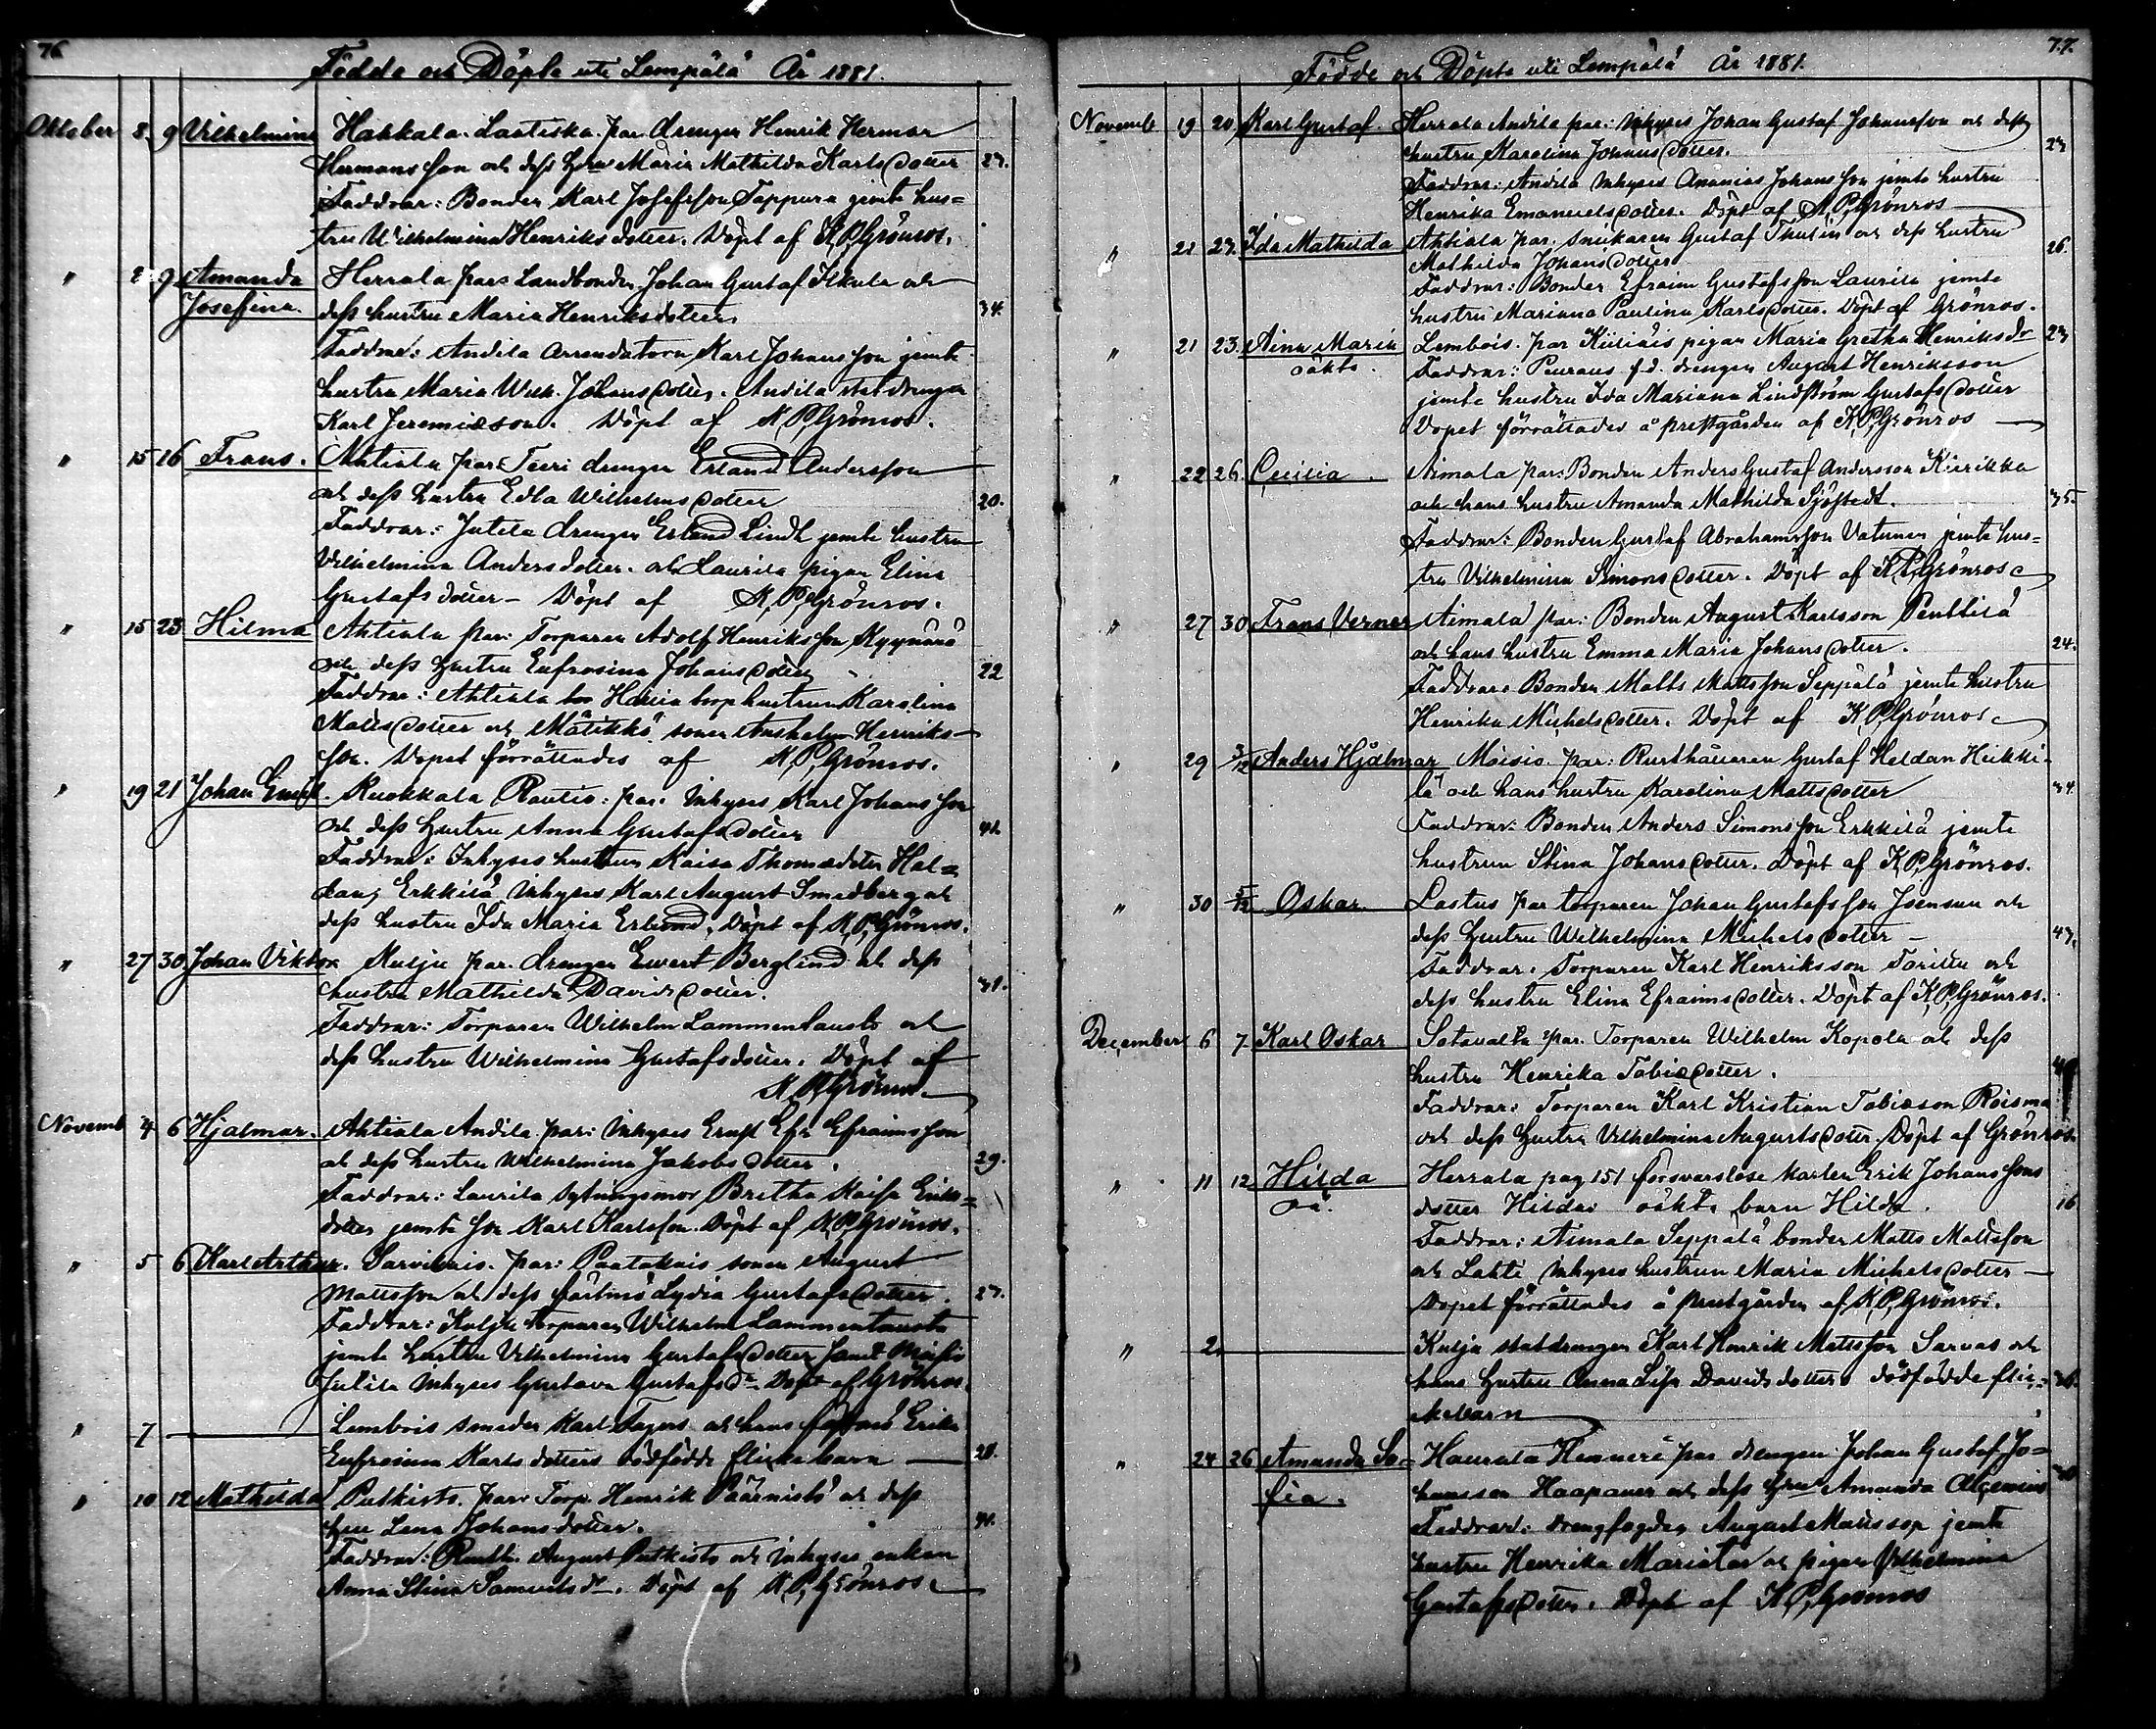 76
Födde och Döpte uti Lempälä År 1881.
Oktober 8. 9 Vilhelmina Hakkala. Lastiska par. drengen Henrik Herman
Hermansson och dess hru Maria Mathilda Karlsdotter 27.
Faddrar: Bonden Karl Josefsson Tappura jemte hus=
tru Wilhelmina Henriksdotter. Döpt af K. P. Grönros.
" 9 Amanda Herrala par: Landbonden Johan Gustaf Ilkula och
Josefina. dess hustru Maria Henriksdotter. 34.
Faddrar: Andila arrendatorn Karl Johansson jemte
hustru Maria Wilh. Johansdotter. Andila statdrengen
Karl Jeremiæson. Döpt af K. P. Grönros.
" 15 16 Frans. Ahtiala par: Teeri drengen Erland Andersson
och dess hustru Edla Wilhelmsdotter 20.
Faddrar: Jutila drengen Erland Lindh jemte hustru
Vilhelmina Andersdotter. och Laurila pigan Elina
Gustafsdotter – Döpt af K. P. Grönros.
" 15 23 Hilma Ahtiala par: Torparen Adolf Henriksson Kyynärö
och dess hustru Eufrosina Johansdotter 22
Faddrar: Ahtiala torphustrun Karolina
Mattsdotter och Mätikkö sonen Anshelm Henriks-
son. Dopet förrättades af K. P. Grönros.
" 19 21 Johan Ernst Kuokkala Rautio: par. Inhyses Karl Johansson
och dess hustru Anna Gustafsdotter 41.
Faddrar: Inhyses hustrun Kaisa Thomædotter Hal=
dan, Erkkilä Inhyses Karl August Smedberg och
dess hustru Ida Maria Erlund. Döpt af K. P. Grönros.
" 27 30 Johan Viktor Kulju par. drengen Ewert Berglund och dess
hustru Mathilda Davidsdotter. 31.
Faddrar: Torparen Wilhelm Lammentausto och
dess hustru Wilhelmina Gustafsdotter. Döpt af
K. P. Grönros.
Novemb 4 6 Hjalmar. Ahtiala Andila par: Inhyses Ernst Efr. Efraimsson
och dess hustru Wilhelmina Jakobsdotter. 29.
Faddrar: Laurila sytningsmor Britha Kaisa Eriks=
dotter jemte son Karl Karlsson. Döpt af K. P. Grönros.
" 5 6 Karl Arthur. Sarvikais. par: Pantakais sonen August
Mattsson och dess fästmö Lydia Gustafsdotter. 27.
Faddrar: Kulju torparen Wilhelm Lammentausta
jemte hustru Vilhelmina Gustafsdotter samt Moisio
Jutila Inhyses Gustava Gustafsdr. Döpt af Grönros.
" 7 Lembois smeden Karl och hans Erika
Eufrosina Karlsdotters dödfödde flickebarn 28.
" 10 12 Mathilda Putkisto. par: Torp. Henrik Päärnistö och dess
hru Lena Johansdotter.
Faddrar: Rusth. August Putkisto och Inhyses enkan
Anna Stina Samuelsdr. Döpt af K. P. Grönros.
77.
Födde och Döpte uti Lempälä År 1881.
Novemb 19 20 Karl Gustaf. Herrala Andila par: Inhyses Johan Gustaf Johansson och dess
hustru Karolina Johansdotter. 27
Faddrar: Andila Inhyses Ananias Johansson jemte hustru
Henrika Emanuelsdotter. Döpt af K. P. Grönros
" 21 27. Ida Mathilda Ahtiala par. snickaren Gustaf Thulin och dess hustru 26.
Mathilda Johansdotter
Faddrar: Bonden Efraim Gustafsson Laurila jemte
hustru Mariana Paulina Karlsdotter. Döpt af Grönros.
" 21 23. Aina Maria Lembois. par Kiiliäis pigan Maria Gretha Henriksdr 27
oäkta. Faddrar: Peuraus f.d. drengen August Henriksson
jemte hustru Ida Mariana Lindström Gustafsdotter
Dopet förrättades å prestgården af K. P. Grönros
" 22 26. Cecilia. Aimala par: Bonden Anders Gustaf Andersson Kierikka
och hans hustru Amanda Mathilda Sjöstedt. 35.
Faddrar: Bonden Gustaf Abrahamsson Vatunen jemte hus=
tru Vilhelmina Simonsdotter. Döpt af K. P. Grönros
" 27 30 Frans Verner Aimala par: Bonden August Karlsson Penttilä
och hans hustru Emma Maria Johansdotter. 24.
Faddrar: Bonden Matts Mattsson Seppälä jemte hustru
Henrika Michelsdotter. Döpt af K. P. Grönros
" 29 3/12 Anders Hjalmar Moisio. par: Rusthållaren Gustaf Haldan Heikki-
lä och hans hustru Karolina Mattsdotter 34.
Faddrar: Bonden Anders Simonsson Erkkilä jemte
hustrun Stina Johansdotter. Döpt af K. P. Grönros.
" 30 5/12 Oskar Lastus par torparen Johan Gustafsson Isensun och
dess hustru Wilhelmina Michelsdotter – 43.
Faddrar: Torparen Karl Henriksson Torittu och
dess hustru Elina Efraimsdotter. Döpt af K. P. Grönros.
December 6 7 Karl Oskar Sotavalta par. Torparen Wilhelm Kopola och dess
hustru Henrika Tobiædotter.
Faddrar: Torparen Karl Kristian Tobiæson Roisma
och dess hustru Vilhelmina Augustsdotter. Döpt af Grönros.
" 11 12 Hilda Herrala pag 151 försvarslöse karlen Erik Johanssons
oä. dotter Hildas oäkta barn Hilda. 16
Faddrar: Aimala Seppälä bonden Matts Mattsson
och Lahti Inhyses hustrun Maria Michelsdotter –
Dopet förrättades å prestgården af K. P. Grönros.
" 2. Kulju statdrengen Karl Henrik Mattsson Sarvas och
hans hustru Anna Lisa Davidsdotters dödfödde flic- 36.
kebarn
" 24 26 Amanda So- Haurala Heinneri par drengen Johan Gustaf Jo=
fia. hansson Haapanen och dess hru Amanda
Faddrar: drengfogden August Mattsson jemte
hustru Henrika Mariatar och pigan Vilhelmina
Gustafsdotter. Döpt af K. P. Grönros